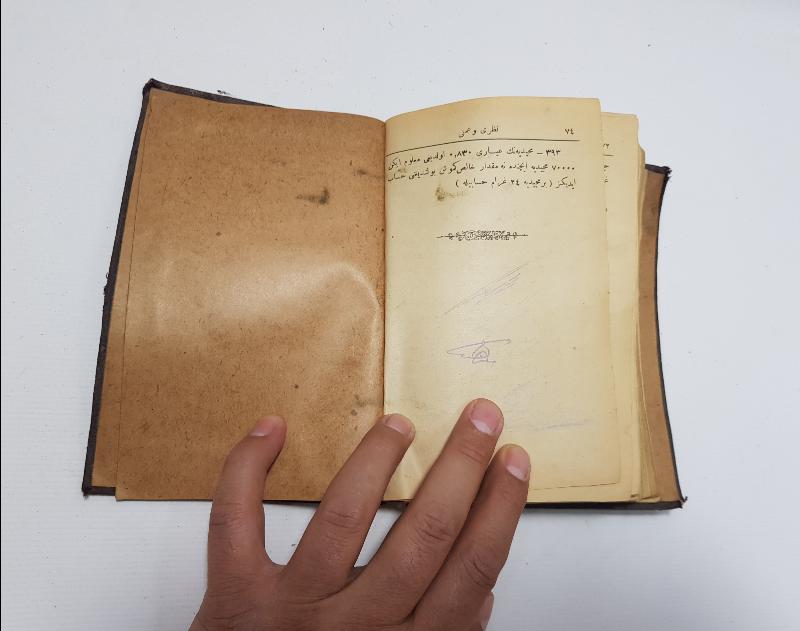 ٧٤
نظری و عملی
٣٩٣ — مجیدیه‌نك عیاری ٠,٨٣٠ اولدیغی معلوم ایكن
٧٠٠٠٠ مجیدیه ایچنده نه مقدار خالص كوش بولندیغنی حساب
ایدیكز ( بر مجیدیه ٢٤ غرام حسابیله )